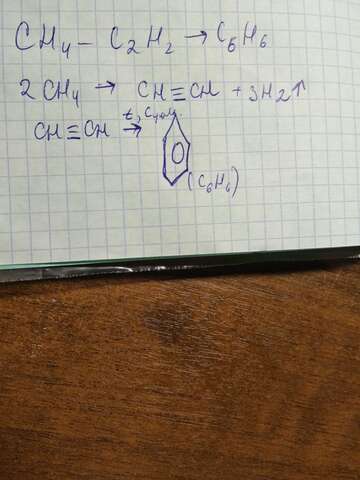 CH₄ – C₂H₂ → C₆H₆
2CH₄ → CH≡CH + 3H2↑
CH≡CH t, Cуголь →
(C₆H₆)